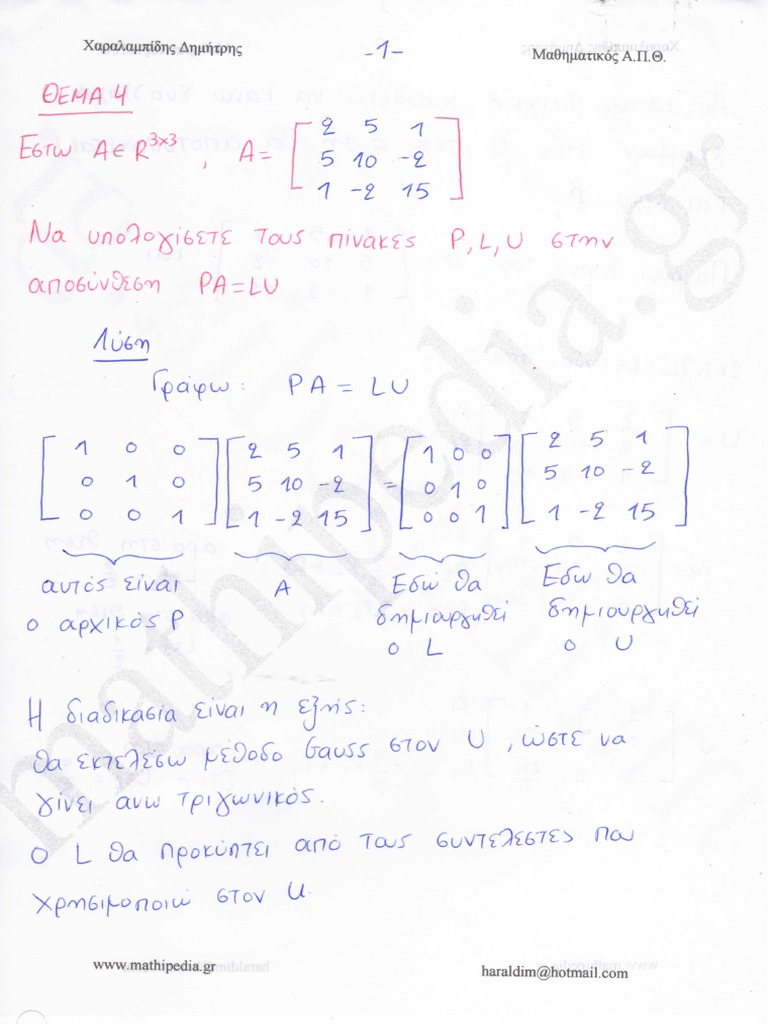 Χαραλαμπίδης Δημήτρης -1- Μαθηματικός Α.Π.Θ.
ΘΕΜΑ 4
Εστω A∈R^3×3, A= [2 5 1
5 10 -2
1 -2 15]
Να υπολογίσετε τους πίνακες P, L, U στην
αποσύνθεση PA=LU
Λύση
Γράφω: PA = LU
[1 0 0] [2 5 1] = [1 0 0] [2 5 1]
[0 1 0] [5 10 -2] [0 1 0] [5 10 -2]
[0 0 1] [1 -2 15] [0 0 1] [1 -2 15]
αυτός είναι A Εδώ θα Εδώ θα
ο αρχικός P δημιουργηθεί δημιουργηθεί
ο L ο U
Η διαδικασία είναι η εξής:
θα εκτελέσω μέθοδο Gauss στον U, ώστε να
γίνει ανω τριγωνικός.
Ο L θα προκύπτει από τους συντελεστές που
χρησιμοποιώ στον U.
www.mathipedia.gr haraldim@hotmail.com
mathipedia.gr